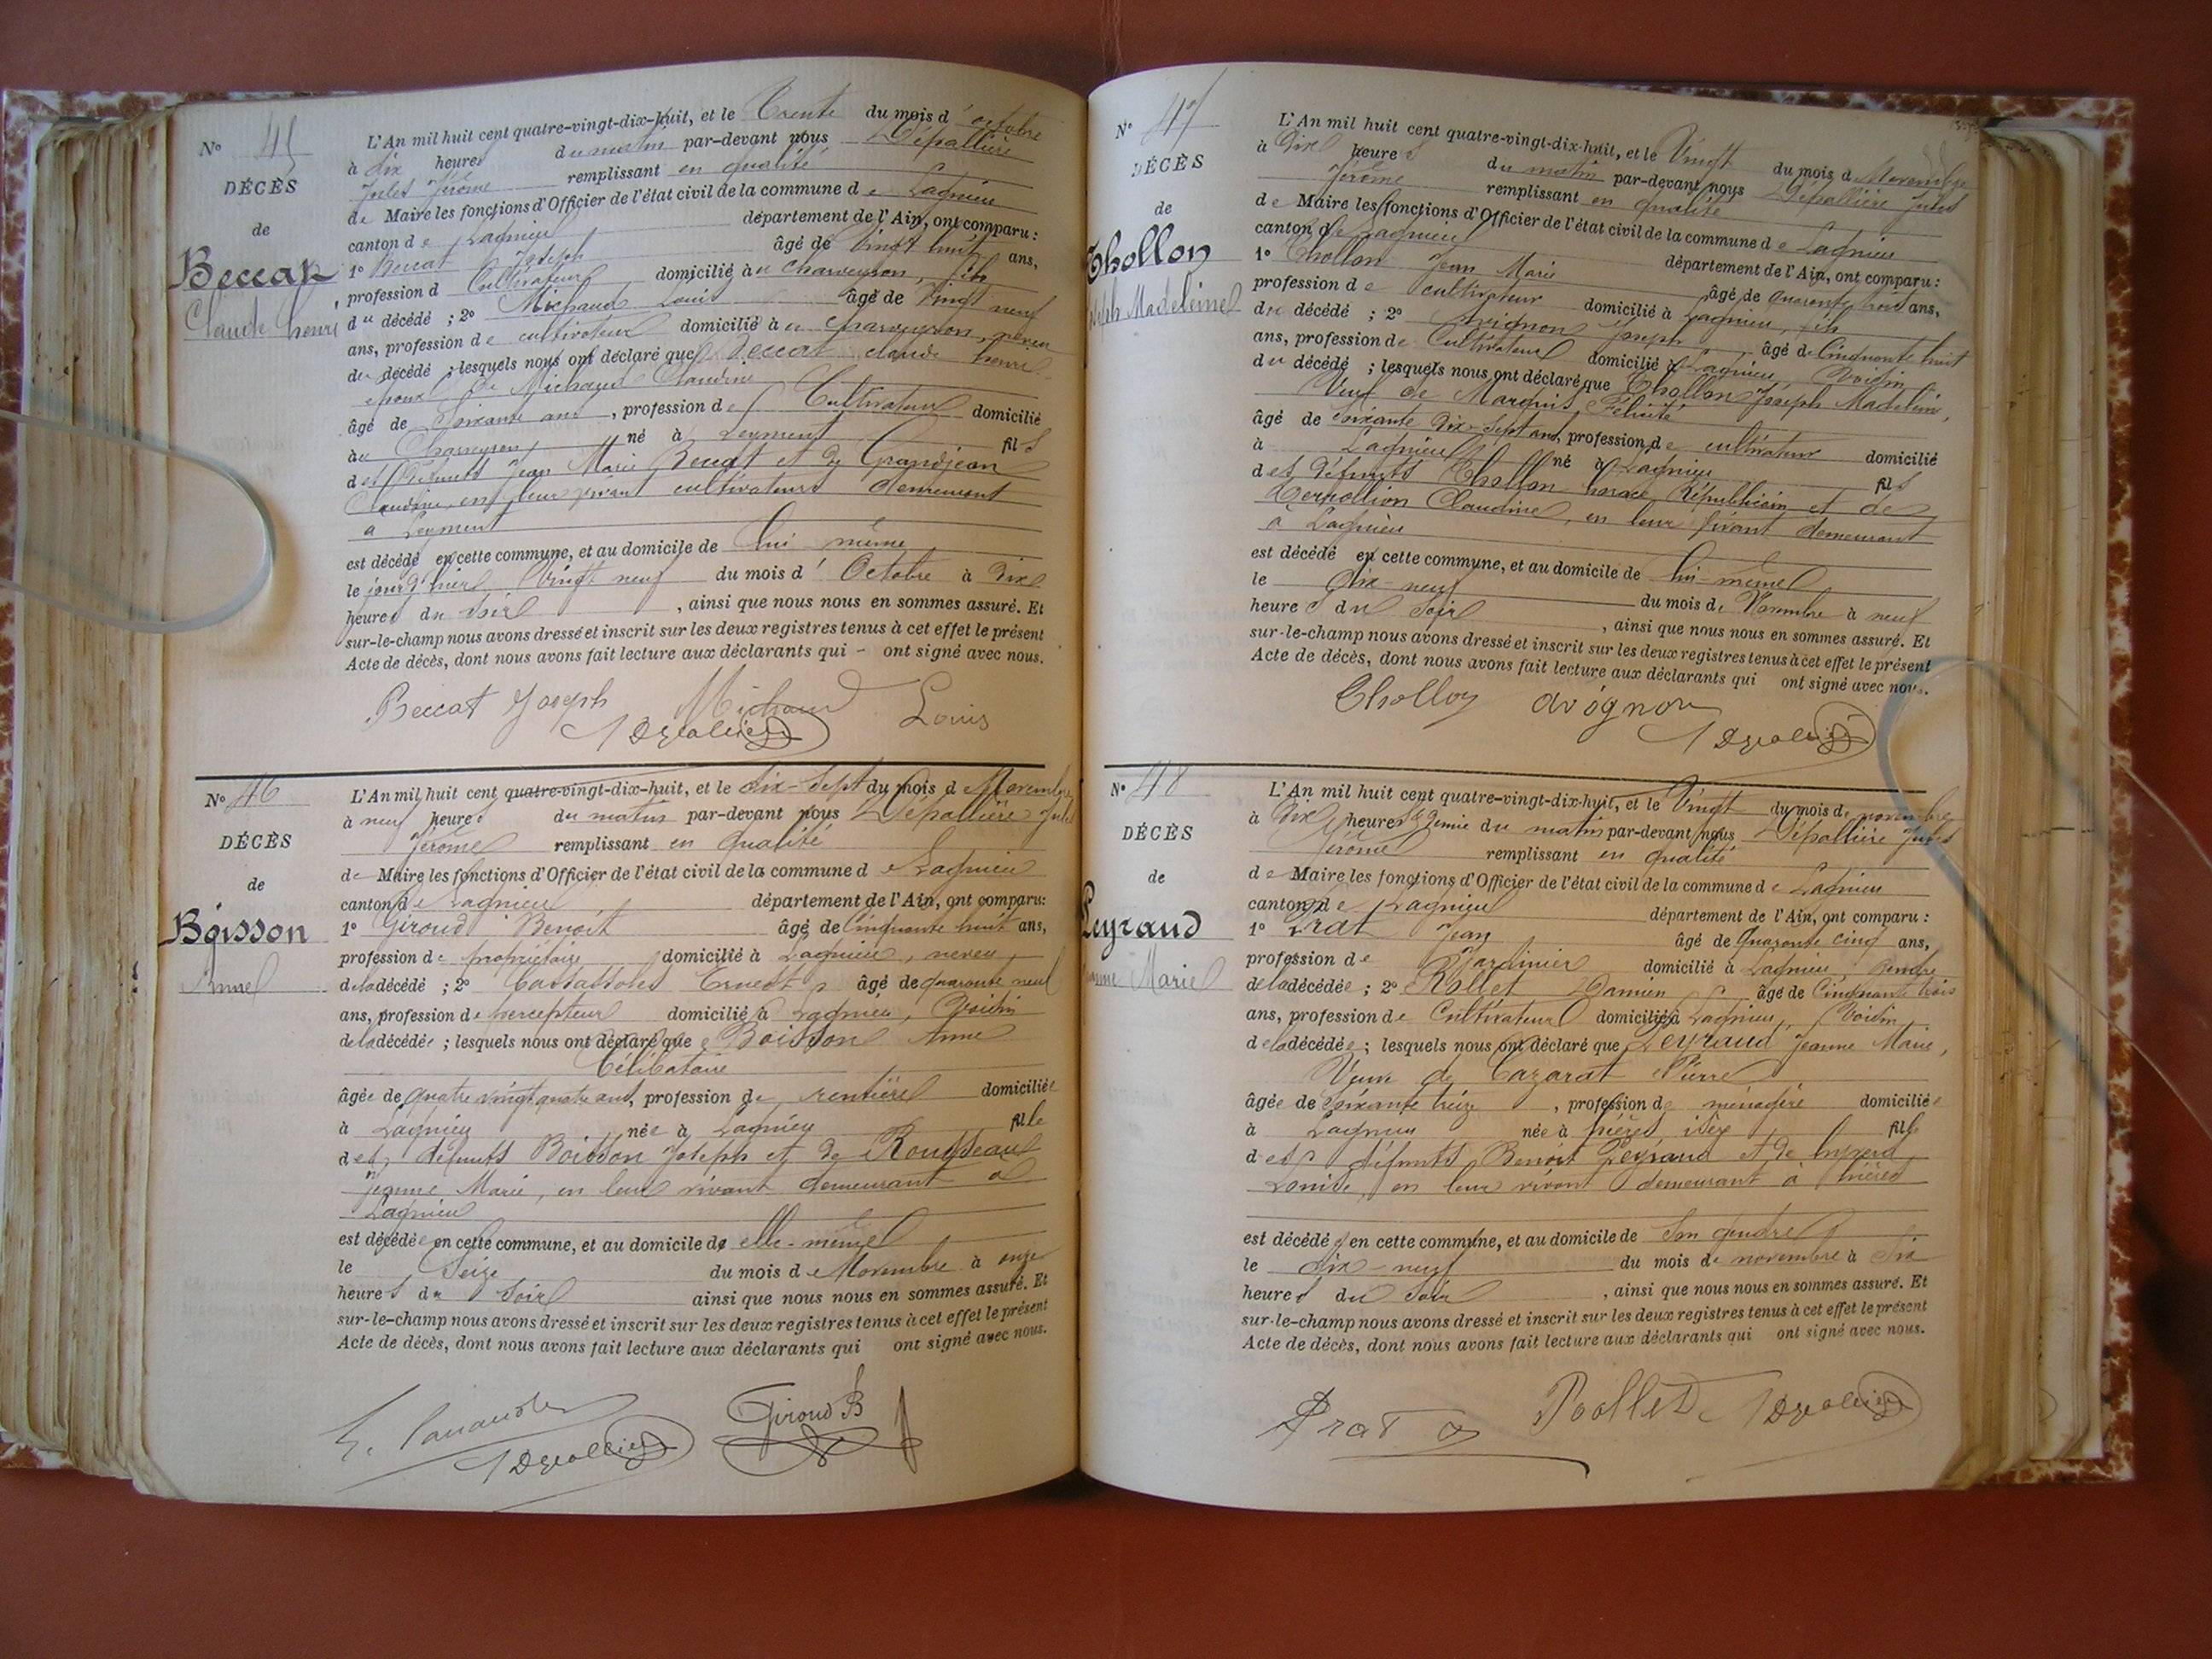 N° 45
DÉCÈS
de
Beccat
Claude henri
L'An mil huit cent quatre-vingt-dix-huit, et le Trente du mois d'octobre
à dix heures du matin par-devant nous Dépallière
Jules Jérôme remplissant en qualité
de Maire les fonctions d'Officier de l'état civil de la commune de Lagnieu
canton de Lagnieu département de l'Ain, ont comparu :
1° Beccat Joseph âgé de vingt huit ans,
profession d Cultivateur domicilié à Charveyron, fils
du décédé ; 2° Michaud Louis âgé de vingt neuf
ans, profession de cultivateur domicilié à Charveyron, neveu
du décédé ; lesquels nous ont déclaré que Beccat claude henri
époux de Michaud Claudine
âgé de Soixante ans, profession de Cultivateur domicilié
à Charveyron né à Leyment fils
des défunts Jean Marie Beccat et de Grandjean
Claudine, en leur vivant cultivateurs demeurant
a Leyment
est décédé en cette commune, et au domicile de lui même
le jour d'hier vingt neuf du mois d'Octobre à dix
heures du soir, ainsi que nous nous en sommes assuré. Et
sur-le-champ nous avons dressé et inscrit sur les deux registres tenus à cet effet le présent
Acte de décès, dont nous avons fait lecture aux déclarants qui - ont signé avec nous.
Beccat Joseph Michaud Louis
N° 46
DÉCÈS
de
Boisson
Anne
L'An mil huit cent quatre-vingt-dix-huit, et le dix-sept du mois de Novembre
à neuf heures du matin par-devant nous Dépallière Jules
Jérôme remplissant en qualité
de Maire les fonctions d'Officier de l'état civil de la commune de Lagnieu
canton de Lagnieu département de l'Ain, ont comparu :
1° Giroud Benoît âgé de Cinquante huit ans,
profession de propriétaire domicilié à Lagnieu, neveu
de la décédé ; 2° Cassassoles Ernest âgé de quarante neuf
ans, profession de percepteur domicilié à Lagnieu, Voisin
de la décédée ; lesquels nous ont déclaré que Boisson Anne
Célibataire
âgée de quatre vingt quatre ans, profession de rentière domiciliée
à Lagnieu née à Lagnieu fille
des défunts Boisson Joseph et de Rousseau
Jeanne Marie, en leur vivant demeurant à
Lagnieu
est décédée en cette commune, et au domicile de elle-même
le Seize du mois de Novembre à onze
heures du soir ainsi que nous nous en sommes assuré. Et
sur-le-champ nous avons dressé et inscrit sur les deux registres tenus à cet effet le présent
Acte de décès, dont nous avons fait lecture aux déclarants qui ont signé avec nous.
Giroud B
N° 47
DÉCÈS
de
Chollon
Joseph Madeleine
L'An mil huit cent quatre-vingt-dix-huit, et le Vingt du mois de Novembre
à Dix heures du matin par-devant nous Dépallière Jules
Jérôme remplissant en qualité
de Maire les fonctions d'Officier de l'état civil de la commune de Lagnieu
canton de Lagnieu département de l'Ain, ont comparu :
1° Chollon Jean Marie âgé de quarante trois ans,
profession de cultivateur domicilié à Lagnieu, fils
du décédé ; 2° Avignon Joseph âgé de Cinquante huit
ans, profession de Cultivateur domicilié à Lagnieu, Voisin
du décédé ; lesquels nous ont déclaré que Chollon Joseph Madelein,
Veuf de Marquis Félicité
âgé de soixante Dix-Sept ans, profession de cultivateur domicilié
à Lagnieu né à Lagnieu fils
des défunts Chollon horace Républicain et de
Claudine, en leur vivant demeurant
à Lagnieu
est décédé en cette commune, et au domicile de lui-même
le dix-neuf du mois de Novembre à neuf
heures du Soir, ainsi que nous nous en sommes assuré. Et
sur-le-champ nous avons dressé et inscrit sur les deux registres tenus à cet effet le présent
Acte de décès, dont nous avons fait lecture aux déclarants qui ont signé avec nous.
Chollon avignon
N° 48
DÉCÈS
de
Leyraud
Jeanne Marie
L'An mil huit cent quatre-vingt-dix-huit, et le Vingt du mois de novembre
à Dix heures & Demie du matin par-devant nous Dépallière Jules
Jérôme remplissant en qualité
de Maire les fonctions d'Officier de l'état civil de la commune de Lagnieu
canton de Lagnieu département de l'Ain, ont comparu :
1° Prat Jean âgé de Quarante cinq ans,
profession de Jardinier domicilié à Lagnieu, Gendre
de la décédée ; 2° Rollet Damien âgé de Cinquante trois
ans, profession de Cultivateur domicilié à Lagnieu, Voisin
de la décédée ; lesquels nous ont déclaré que Leyraud Jeanne Marie,
Veuve de Cazarat Pierre
âgée de soixante treize, profession de ménagère domiciliée
à Lagnieu née à isère fille
des défunts Benoit Leyraud et de
Louise, en leur vivant demeurant à
est décédée en cette commune, et au domicile de Son gendre
le dix-neuf du mois de novembre à Six
heures du Soir, ainsi que nous nous en sommes assuré. Et
sur-le-champ nous avons dressé et inscrit sur les deux registres tenus à cet effet le présent
Acte de décès, dont nous avons fait lecture aux déclarants qui ont signé avec nous.
Prat Rollet